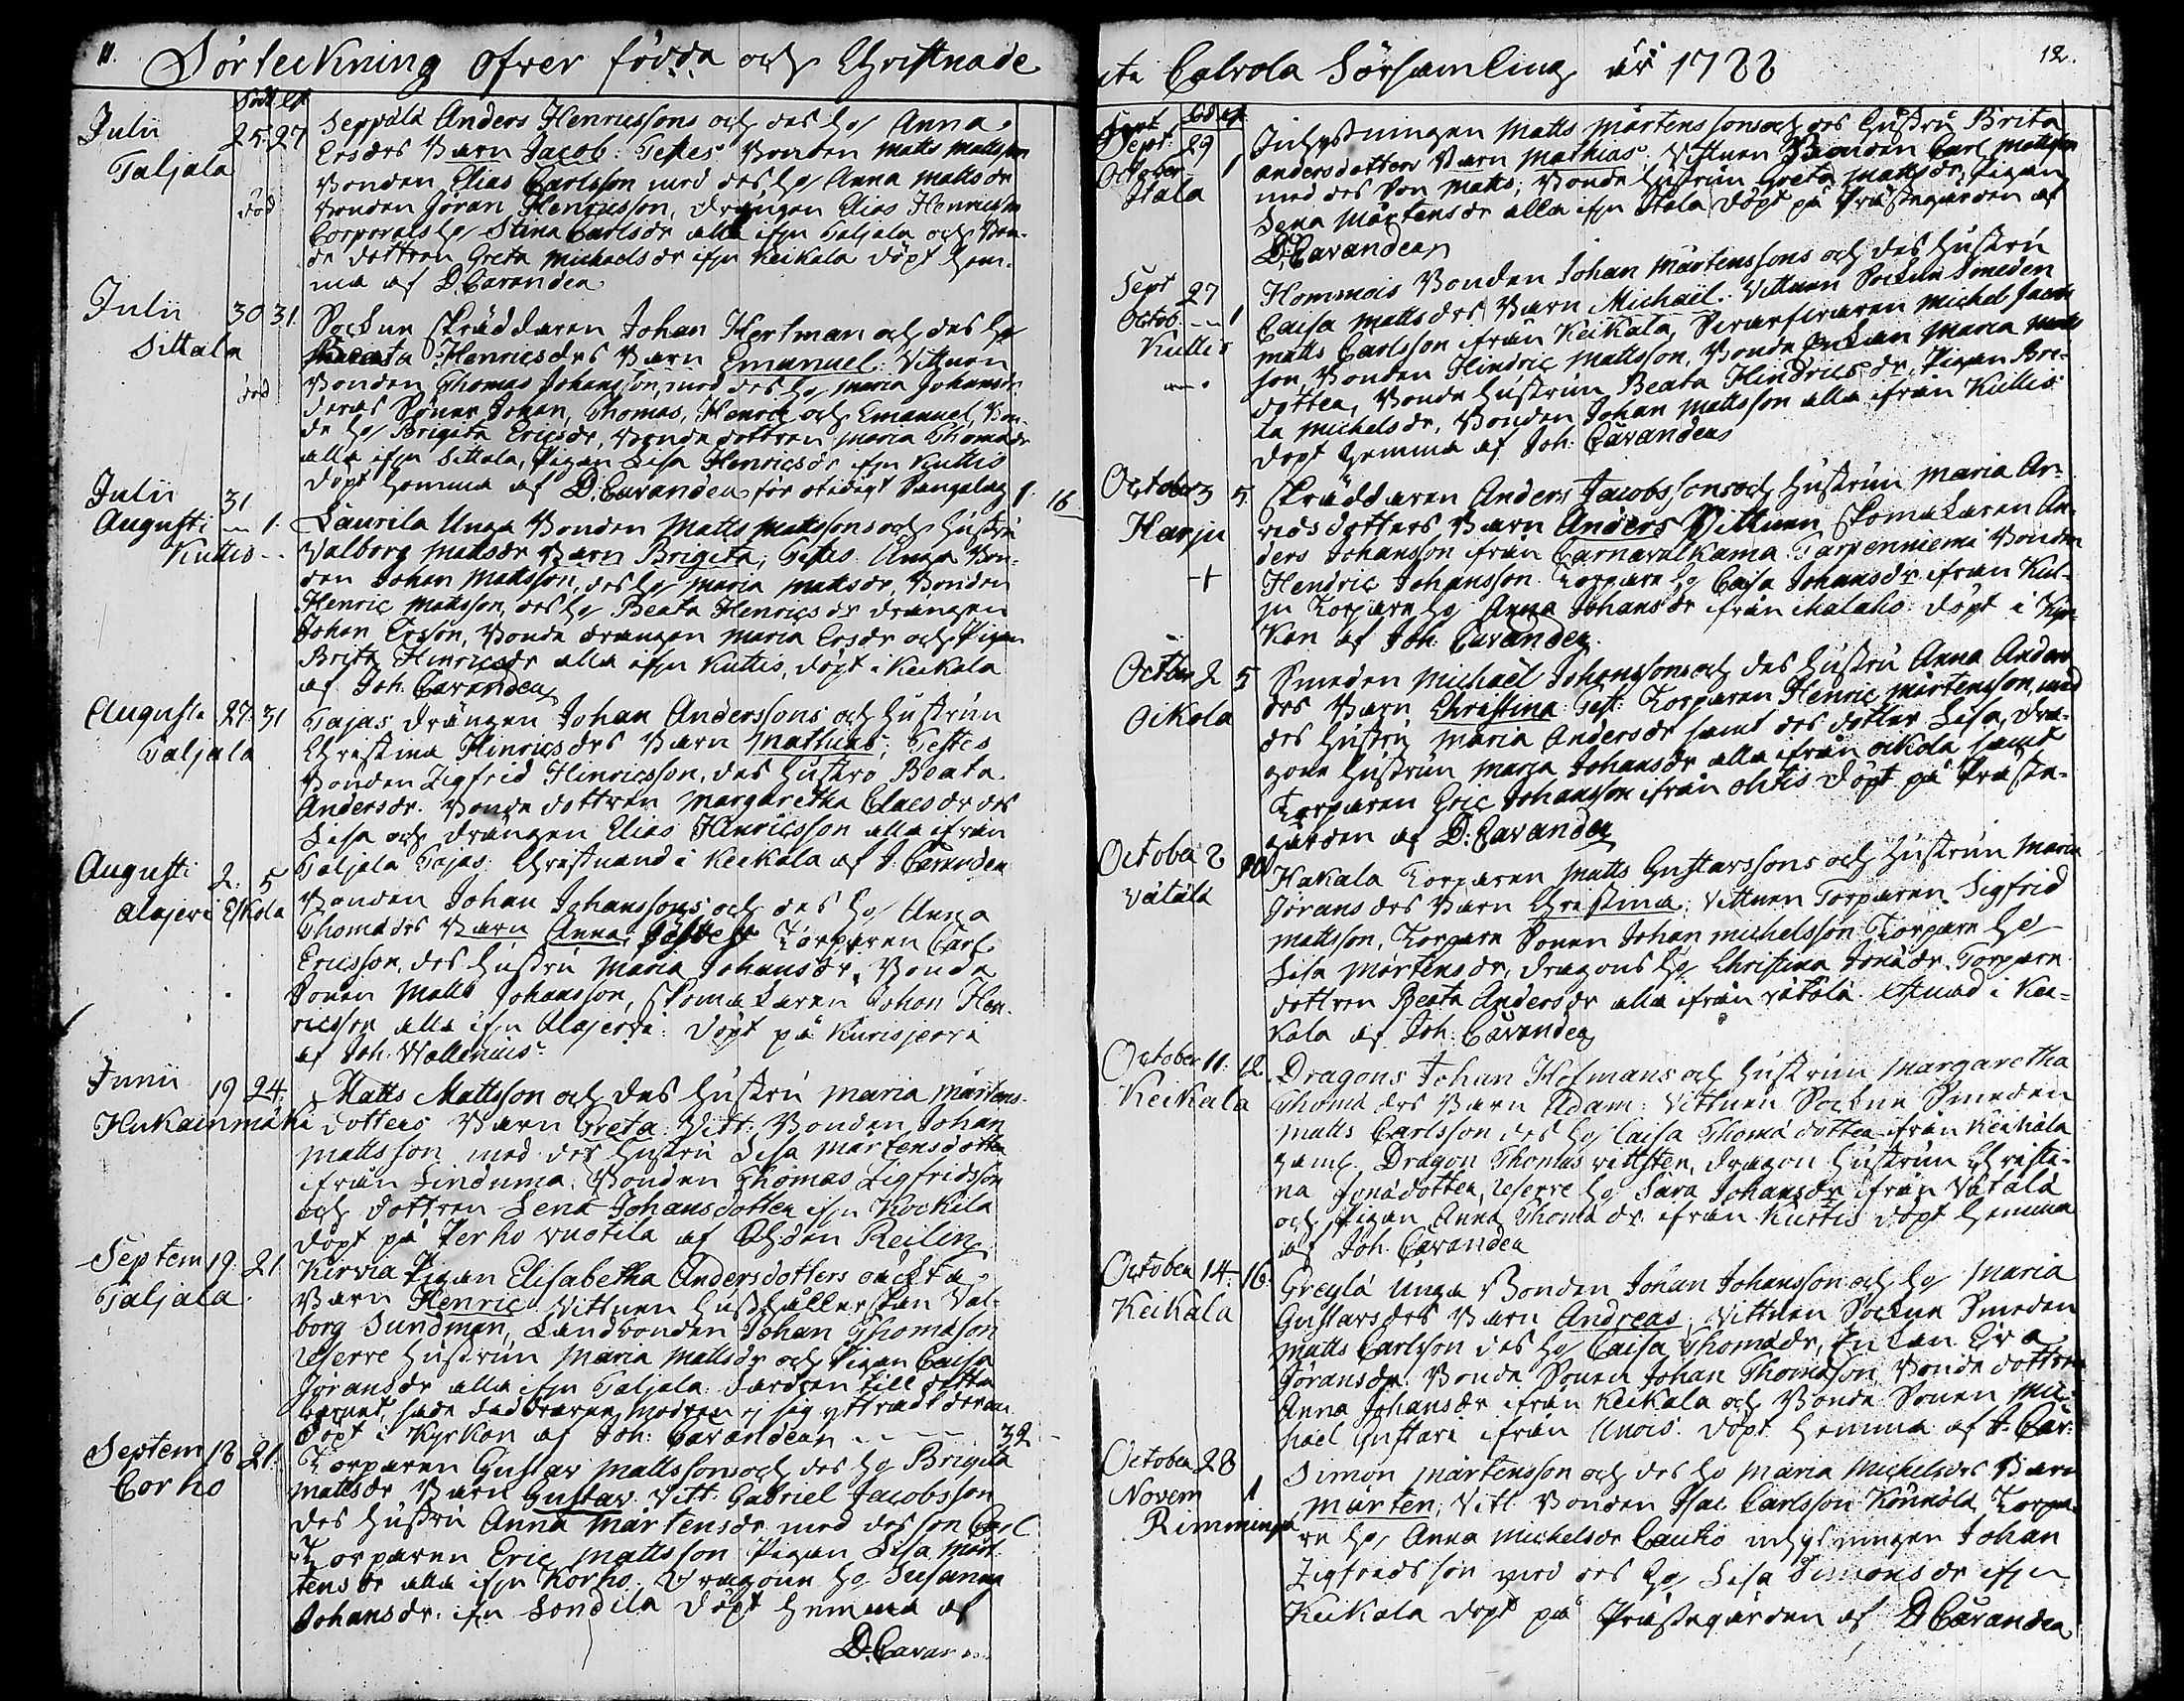 11. Förteckning öfver födda och Christnade
Född Xst
Julii 25. 27 Seppälä Anders Henricssons och des h. Anna
Taljala Ersdrs Barn Jacob: Testes Bonden Matts Mattsson
Bonden Elias Carlsson med des h. Anna Mattsdr
död Bonden Jöran Henricsson, drängen Elias Henricsson
Corporals h. Stina Carlsdr alla ifrn Taljala och Bon-
de dottren Greta Michaelsdr ifrn Keikala döpt hem-
ma af D. Cavander
Julii 30 31. Sockne skräddaren Johan Hertman och des h.
Sittala Beata Henricsdrs Barn Emanuel: Vittnen
Bonden Thomas Johansson, med des h. Maria Johansdr
död deras Söner Johan, Thomas, Henric och Emanuel, Bon-
de h. Brigita Ericsdr, Bonde dottren Maria Thomasdr
alla ifrn Sittala, Pigan Lisa Henricsdr ifrn Kuttis
döpt hemma af D. Cavander för otidigt Sängelag 1. 16
Julii 31
Augusti 1. Laurila Unga Bonden Matts Mattssons och hustru
Kuttis Valborg Mattsdr Barn Brigita; Testes Unga Bon-
den Johan Mattsson, des h. Maria Mattsdr, Bonden
Henric Mattsson, des h. Beata Henricsdr drängen
Johan Ersson, Bonde drängen Maria Ersdr och Pigan
Brita Hinricsdr alla ifrn Kuttis, döpt i Keikala
af Joh. Cavander
Augusti 27 31 Tajas drängen Johan Anderssons och Hustrun
Taljala Christina Hinricsdrs Barn Mathias; Testes
Bonden Zigfrid Hinricsson, des Hustro Beata
Andersdr. Bonde dottren Margaretha Claesdr des
Lisa och drängen Elias Hinricsson alla ifrån
Taljala Tajas: Christnand i Keikala af J. Cavander
Augusti 2. 5 Bonden Johan Johanssons och des h. Anna
Alajervi Eskola Thomasdrs Barn Anna, Torparen Carl
Ericsson, des hustru Maria Johansdr, Bonde
Sonen Matts Johansson, Skomakaren Johan Hen-
ricsson alla ifrn Alajervi: döpt på Kurisjervi
af Joh. Wallenius
Junii 19 24. Matts Mattsson och des hustru Maria Mårtens-
Hukainmäki dotters Barn Greta: Vitt: Bonden Johan
Mattsson med des hustru Lisa Mårtensdotter
ifrån Linduma. Bonden Thomas Zigfridsson
och dottren Lena Johansdotter ifrn Kockila
döpt på Perho ruotila af Reilin
Septem 19. 21 Kirvia Pigan Elisabetha Andersdotters oäckta
Taljala Barn Henric Vittnen Hushållerskan Val-
borg Sundman, Landbonden Johan Thomasson
Reserve hustrun Maria Mattsdr och Pigan Caisa
Jöransdr alla ifrn Taljala: fadren till detta
barnet, hade modren ej sig yttradt derom
döpt i Kyrkan af Joh: Cavander 32
Septem 18 21. Torparen Gustav Mattssons och des h. Brigita
Corho Mattsdr Barn Gustav. Vitt: Gabriel Jacobsson
des hustru Anna Mårtensdr med des son Carl
Torparen Eric Mattsson Pigan Lisa Mår-
tensdr alla ifrn Korho. Dragoun h. Susanna
Johansdr. ifrn Sondila döpt hemma af
D. Cavar
uti Calvola Församling år 1788 12.
Föd Xst
Sept: 29 Inhysningen Matts Mårtenssons och des hustru Brita
October 1 Andersdotters Barn Mathias: Vittnen Bonden Carl Mattsson
Itala med des Son Matts; Bonde hustrun Greta Mattsdr, Pigan
Lena Mårtensdr alla ifrn Itala döpt på Prästegården af
D. Cavander
Sept 27 Hommois Bonden Johan Mårtenssons och des hustru
Octob. 1 Caisa Mattsdrs Barn Michaël. Vittnen Sockne Smeden
Kuttis Matts Carlsson från Keikala, Michel Jacob
son, Bonden Hindric Mattsson, Bonde Enkan Maria Matts
dotter, Bonde hustrun Beata Hindricsdr, Pigan Bri-
ta Michelsdr, Bonden Johan Mattsson alla ifrån Kuttis
döpt hemma af Joh: Cavander
October 3 5 Skräddaren Anders Jacobssons och hustrun Maria Ar-
Harju vidsdotters Barn Anders Vittnen Skomakaren An-
ders Johansson ifrån Bonden
+ Hendric Johansson Torpare h. Caisa Johansdr ifrån Kul-
ju Torpare h. Anna Johansdr ifrån döpt i Kyr-
kan af Joh. Cavander
Octber 2 5 Smeden Michaël Johanssons och des hustru Anna Anders
Oikola drs Barn Christina: Test: Torparen Henric Mårtensson med
des hustru Maria Andersdr samt des dotter Lisa, dra-
goun hustrun Maria Johansdr alla ifrån Oikola samt
Torparen Eric Johansson ifrån Ohtis döpt på Präste-
gården af D: Cavander
October 8 10 Hakala Torparen Matts Gustavssons och hustrun Maria
Vätälä Jöransdrs Barn Christina: Vittnen Torparen Sigfrid
Mattsson, Torpare Sonen Johan Michelsson Torpare h.
Lisa Mårtensdr, dragons h. Christina Jonädr. Torpare
dottren Beata Andersdr alla ifrån Vätälä. Xstnad i Kei-
kala af Joh: Cavander
October 11: 12. Dragons Johan Hofmans och hustrun Margaretha
Keikala Thomädrs Barn Adam: Vittnen Sockne Smeden
Matts Carlsson des h. Caisa Thomädotter ifrån Keikala
gaml. Dragon Thomas Vittsten, dragon hustrun Christi-
na Jonädotter, Reserve h. Sara Johansdr ifrån Vätälä
och Pigan Anna Thomädr ifrån Kuttis döpt hemma
af Joh. Cavander
October 14. 16. Greylä Unga Bonden Johan Johansson och h. Maria
Keikala Gustavsdrs Barn Andreas, Vittnen Sockne Smeden
Matts Carlsson des h. Caisa Thomädr, Enkan Eva
Göransdr Bonde Sonen Johan Thomasson, Bonde dottren
Anna Johansdr ifrån Keikala och Bonde Sonen Mic-
hael Gustavi ifrån Unois döpt hemma af J. Cav:
October 28 Simon Mårtensson och des h. Maria Michelsdrs Barn
Novem 1 Mårten, Vitt: Bonden Isac Carlsson Könnölä Torpa-
Rimminga re h. Anna Michelsdr Cauko inhysningen Johan
Zigfredsson med des h. Lisa Simonsdr ifrn
Keikala döpt på Prästegården af D. Cavander